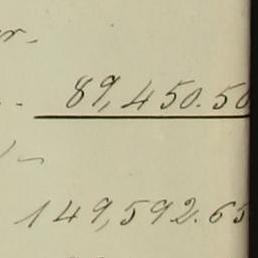 89,450.50
149,592.65